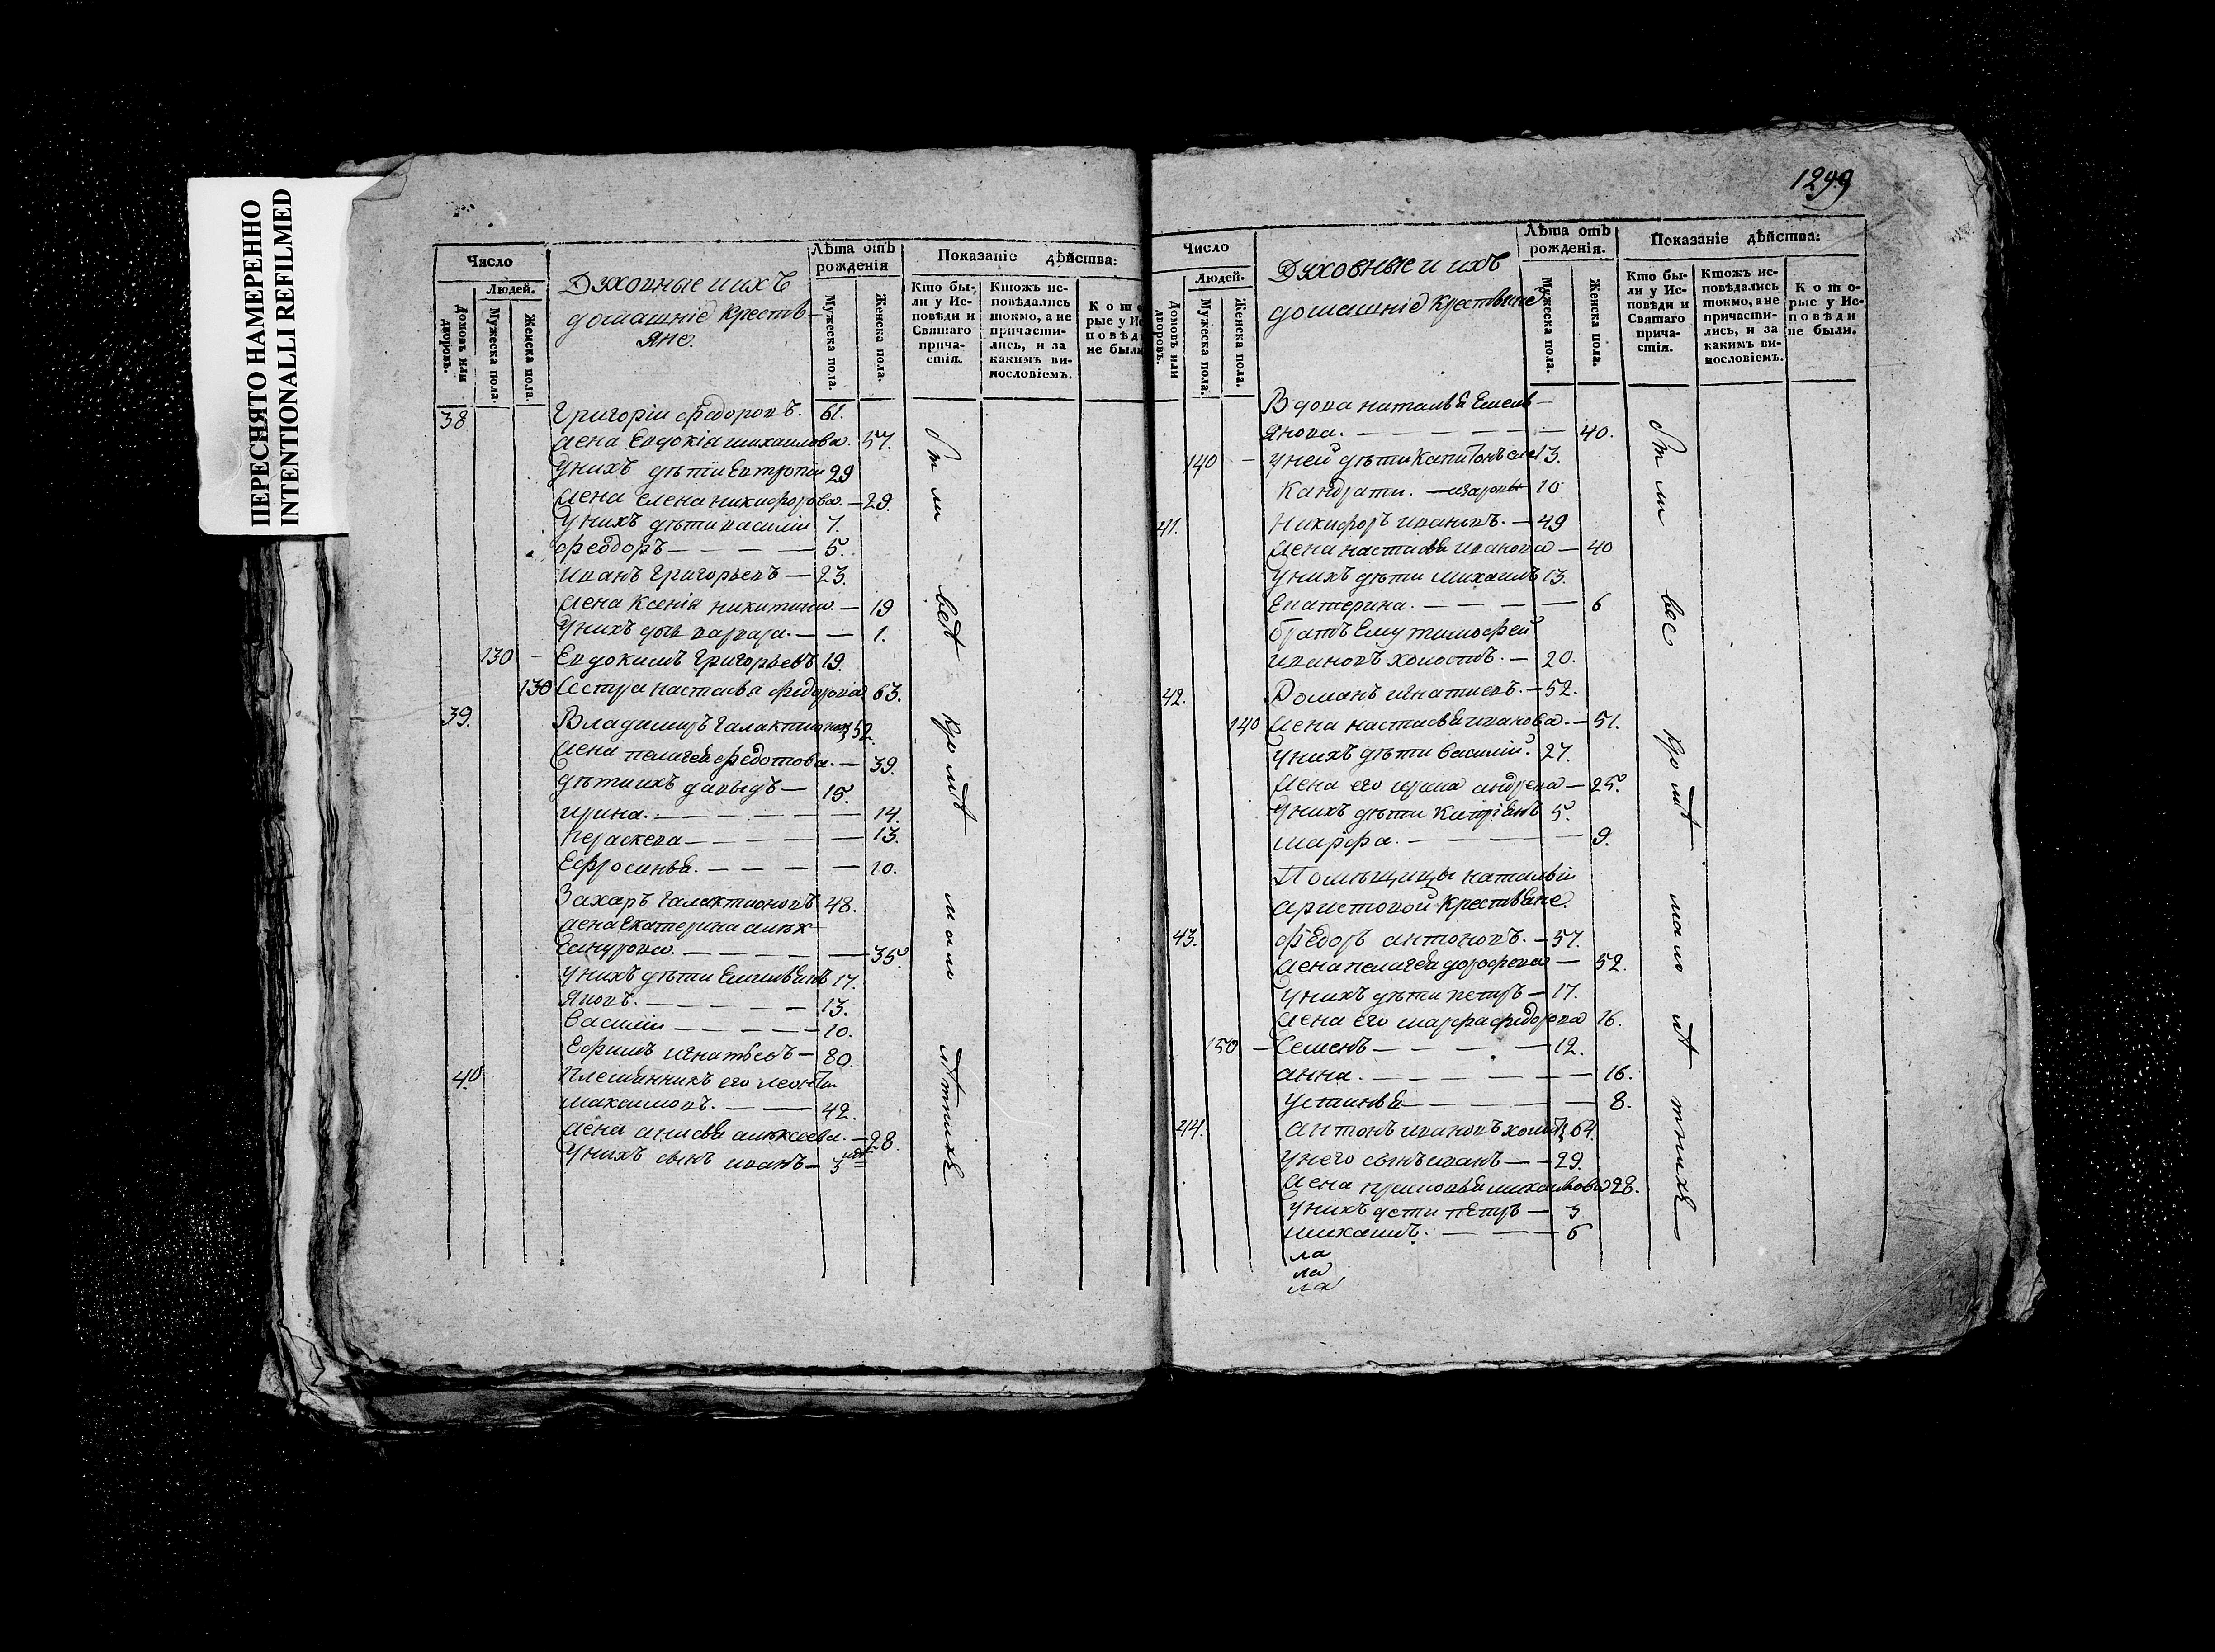 ПЕРЕСНЯТО НАМЕРЕННО
INTENTIONALLI REFILMED
1299
Число
Людей.
Домовъ или дворовъ.
Мужеска пола.
Женска пола.
Духовные и ихъ
домашніе крестья-
яне.
Лѣта отъ рожденія
Мужеска пола.
Женска пола.
Показаніе дѣйства:
Кто бы-
ли у Ис-
повѣди и
Святаго
прича-
стія.
Ктожъ ис-
повѣдались
токмо, а не
причасти-
лись, и за
какимъ ви-
нословіемъ.
Кото
рые у Ис
повѣд
не были
38 Григорій Федоровъ. 61.
Жена Евдокіа михаилова. 57.
У нихъ дѣти Евтропій 29
Жена Елена никифорова. — 29.
У нихъ дѣти василій 7.
феодоръ — 5.
иванъ Григорьевъ — 23.
Жена Ксеніа никитина — 19
У нихъ дочь варвара. — 1.
130 — Евдокимъ Григорьевъ 19.
130 Сестра настасьа федорова 63.
39. Владимиръ галактионовъ 52.
Жена пелагеа федотова. — 39.
дѣти ихъ давыдъ — 15.
ирина. — 14.
Параскева — 13.
Ефросинья. — 10.
Захаръ галактионовъ 48.
Жена Екатерина алек-
сандрова. — 35.
У нихъ дѣти Емельянъ 17.
Яковъ. — 13.
василій — 10.
Ефимъ игнатьевъ — 80.
40 Племянникъ его леонтий
максимовъ. — 42.
Жена анисья алексеева. — 28.
У нихъ сынъ иванъ — 3
всѣ
кромѣ
мало
лѣтнихъ
Число
Людей.
Домовъ или дворовъ.
Мужеска пола.
Женска пола.
Духовные и ихъ
домашніе крестьяне
Лѣта отъ рожденія.
Мужеска пола.
Женска пола.
Показаніе дѣйства:
Кто бы-
ли у Ис-
повѣди и
Святаго
прича-
стія.
Ктожъ ис-
повѣдались
токмо, а не
причасти-
лись, и за
какимъ ви-
нословіемъ.
Кото-
рые у Ис-
повѣди
не были.
Вдова наталья Емель-
янова. — 40.
140 — У ней дѣти Капитонъ 13.
Кандрати. — 10
41. Никифоръ ивановъ. — 49
Жена настасья иванова — 40
У нихъ дѣти михаилъ 13.
Екатерина. — 6
братъ Ему тимофей
ивановъ холостъ. — 20.
42. Романъ игнатиевъ. — 52.
140 Жена настасья иванова. — 51.
У нихъ дѣти василий. 27.
Жена его ирина андреева — 25.
У нихъ дѣти Кипріянъ 5.
марфа. — 9.
Помѣщицы наталіи
аристовой крестьяне.
43. федоръ антоновъ. — 57.
Жена пелагея дорофеева — 52.
У нихъ дѣти петръ — 17.
Жена его марфа федорова 16.
150 — Семенъ — 12.
анна. — 16.
устинья — 8.
44. антонъ ивановъ холостъ 64.
У него сынъ иванъ — 29.
Жена прасковья михайлова 28.
У нихъ дети петръ — 3
михаилъ. — 6
ла
ла
ла
все
кромѣ
мало
лѣ
тнихъ